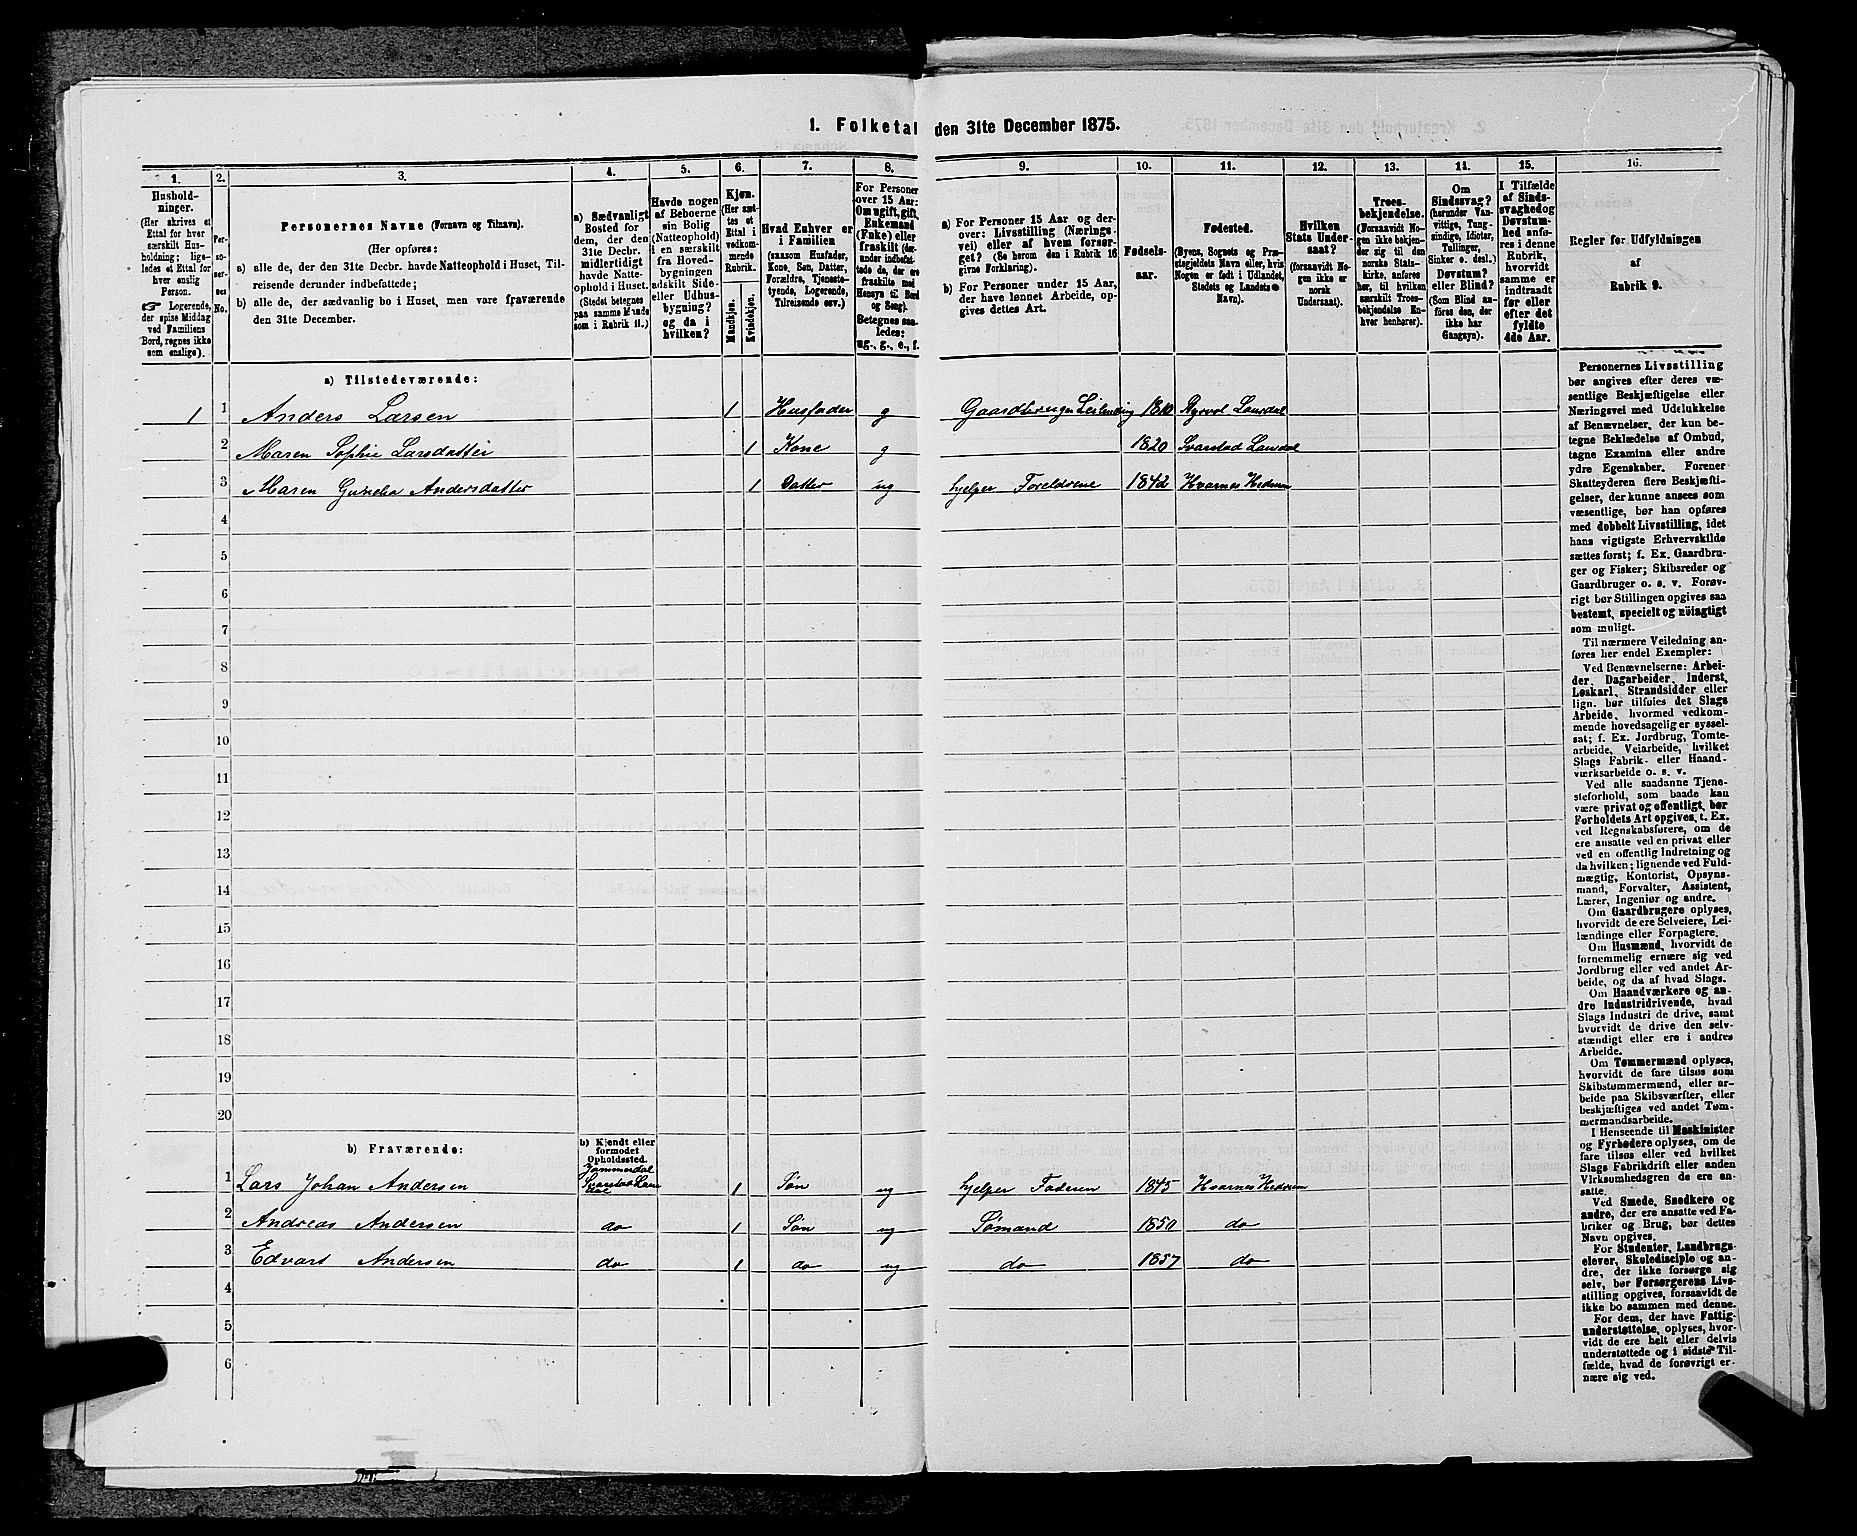 1. Folketal den 31te December 1875.
1. 2. 3. 4. 5. 6. 7. 8. 9. 10. 11. 12. 13. 14. 15. 16.
Husholdninger.
(Her skrives et
Ettal for hver
særskilt Husholdning;
ligeledes et Ettal for
hver enslig
Person.
Logerende,
der spise Middag
ved Familiens
Bord, regnes ikke
som enslige).
Personernes No.
Personernes Navne (Fornavn og Tilnavn).
(Her opføres:
a) alle de, der den 31te Decbr. havde Natteophold i Huset, Tilreisende derunder indbefattede;
b) alle de, der sædvanlig bo i Huset, men vare fraværende den 31te December.
a) Sædvanligt
Bosted for
dem, der den
31te Decbr.
midlertidigt
havde Natteophold
i Huset.
(Stedet betegnes
paa samme Maade
som i Rubrik 11.)
Havde nogen
af Beboerne
sin Bolig
(Natteophold)
i en særskilt
fra Hovedbygningen
adskilt Side-
eller Udhusbygning?
og da i
hvilken?
Kjøn.
(Her sættes et
Ettal i
vedkommende
Rubrik.
Mandkjøn.
Kvindekjøn.
Hvad Enhver er
i Familien
(saasom Husfader,
Kone, Søn, Datter,
Forældre, Tjenestetyende,
Logerende,
Tilreisende osv.)
For Personer
over 15 Aar:
Om ugift, gift,
Enkemand
(Enke) eller
fraskilt (derunder indbefattede de, der ere
fraskilte med
Hensyn til Bord
og Seng).
Betegnes saaledes:
ug., g., e., f.
a) For Personer 15 Aar og derover: Livsstilling (Næringsvei) eller af hvem forsørget? (Se herom den i Rubrik 16 givne Forklaring).
b) For Personer under 15 Aar, der have lønnet Arbeide, opgives dettes Art.
Fødselsaar.
Fødested.
(Byens, Sognets og Præstegjeldets Navn eller, hvis
Nogen er født i Udlandet,
Stedets og Landets
Navn).
Hvilken
Stats Undersaat?
(forsaavidt Nogen ikke er
norsk
Undersaat).
Troesbekjendelse.
(Forsaavidt Nogen ikke bekjender sig til den
norske Statskirke, anføres
her, til hvilken
særskilt Troesbekjendelse Enhver henhører).
Om
Sindssvag?
(herunder Vanvittige, Tungsindige, Idioter,
Tullinger,
Sinker o. desl.)
Døvstum?
eller Blind?
(Som Blind anføres den, der
ikke har
Gangsyn).
I Tilfælde
af Sindssvaghed og
Døvstumhed anføres
i denne
Rubrik,
hvorvidt
samme er
indtraadt
før eller
efter det
fyldte
4de Aar.
Regler for Udfyldningen
af
Rubrik 9.
a) Tilstedeværende:
1 1 Anders Larsen 1 Husfader g Gaardbruger Leilending 1810 Laurdal
2 Maren Sophie Larsdatter 1 Kone g 1820 Svarstad Laurdal
3 Maren Andersdatter 1 Datter ug hjelper Foreldrene 1842 Hvarnes Hedrum
4
5
6
7
8
9
10
11
12
13
14
15
16
17
18
19
20
b) Fraværende:
b) Kjendt eller
formodet
Opholdssted.
1 Lars Johan Andersen Svarstad Laurdal 1 Søn ug hjelper Faderen 1845 Hvarnes Hedrum
2 Andreas Andersen do 1 Søn ug Sømand 1850 do
3 Edvart Andersen do 1 do ug do 1857 do
4
5
6
Personernes Livsstilling
bør angives efter deres væsentlige Beskjæftigelse eller
Næringsvei med Udelukkelse
af Benævnelser, der kun betegne Beklædelse af Ombud,
tagne Examina eller andre
ydre Egenskaber. Forener
Skatteyderen flere Beskjæftigelser, der kunne ansees som
væsentlige, bør han opføres
med dobbelt Livsstilling, idet
hans vigtigste Erhvervskilde
sættes først; f. Ex. Gaardbruger og Fisker; Skibsreder og
Gaardbruger o. s. v. Forøvrigt bør Stillingen opgives saa
bestemt, specielt og nöiagtigt
som muligt.
Til nærmere Veiledning anføres her endel Exempler:
Ved Benævnelserne: Arbeider, Dagarbeider, Inderst,
Løskarl, Strandsidder eller
lign. bør tilføies det Slags
Arbeide, hvormed vedkommende hovedsagelig er sysselsat; f. Ex. Jordbrug, Tomtearbeide, Veiarbeide, hvilket
Slags Fabrik- eller Haandværksarbeide o. s. v.
Ved alle saadanne Tjenesteforhold, som baade kan
være privat og offentligt, bør
Forholdets Art opgives, t. Ex.
ved Regnskabsførere, om de
ere ansatte ved en privat eller
ved en offentlig Indretning og
da hvilken; lignende ved Fuldmægtig, Kontorist, Opsynsmand, Forvalter, Assistent,
Lærer, Ingeniør og andre.
Om Gaardbrugere oplyses,
hvorvidt de ere Selveiere, Leilændinge eller Forpagtere.
Om Husmænd, hvorvidt de
fornemmelig ernære sig ved
Jordbrug eller ved andet Arbeide, og da af hvad Slags.
Om Haandværkere og andre Industridrivende, hvad
Slags Industri de drive, samt
hvorvidt de drive den selvstændigt eller ere i andres
Arbeide.
Om Tømmermænd oplyses,
hvorvidt de fare tilsøs som
Skibstømmermænd, eller arbeide paa Skibsværfter, eller
beskjæftiges ved andet Tømmermandsarbeide.
I Henseende til Maskinister
og Fyrbødere oplyses, om de
fare tilsøs eller ved hvilket
Slags Fabrikdrift eller anden
Virksomhedsgren de ere ansatte.
Ved Smede, Snedkere og
andre, der ere ansatte ved Fabriker og Brug, bør dettes
Navn opgives.
For Studenter, Landbrugselever, Skoledisciple og andre, der ikke forsørge sig
selv, bør Forsørgerens Livsstilling opgives, forsaavidt de
ikke bo sammen med denne.
For dem, der have Fattigunderstøttelse, oplyses, hvorvidt de ere helt eller delvis
understøttede og i sidste Tilfælde, hvad de forøvrigt ernære sig ved.